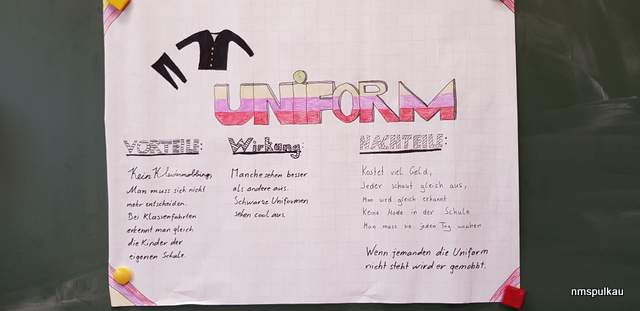 UNIFORM
VORTEILE:
Kein Kleidermobbing,
Man muss sich nicht
mehr entscheiden.
Bei Klassenfahrten
erkennt man gleich
die Kinder der
eigenen Schule.
Wirkung:
Manche sehen besser
als andere aus.
Schwarze Uniformen
sehen cool aus.
NACHTEILE:
Kostet viel Geld,
Jeder schaut gleich aus,
Man wird gleich erkannt
Keine Mode in der Schule
Man muss sie jeden Tag waschen
Wenn jemanden die Uniform
nicht steht wird er gemobbt.
nmspulkau